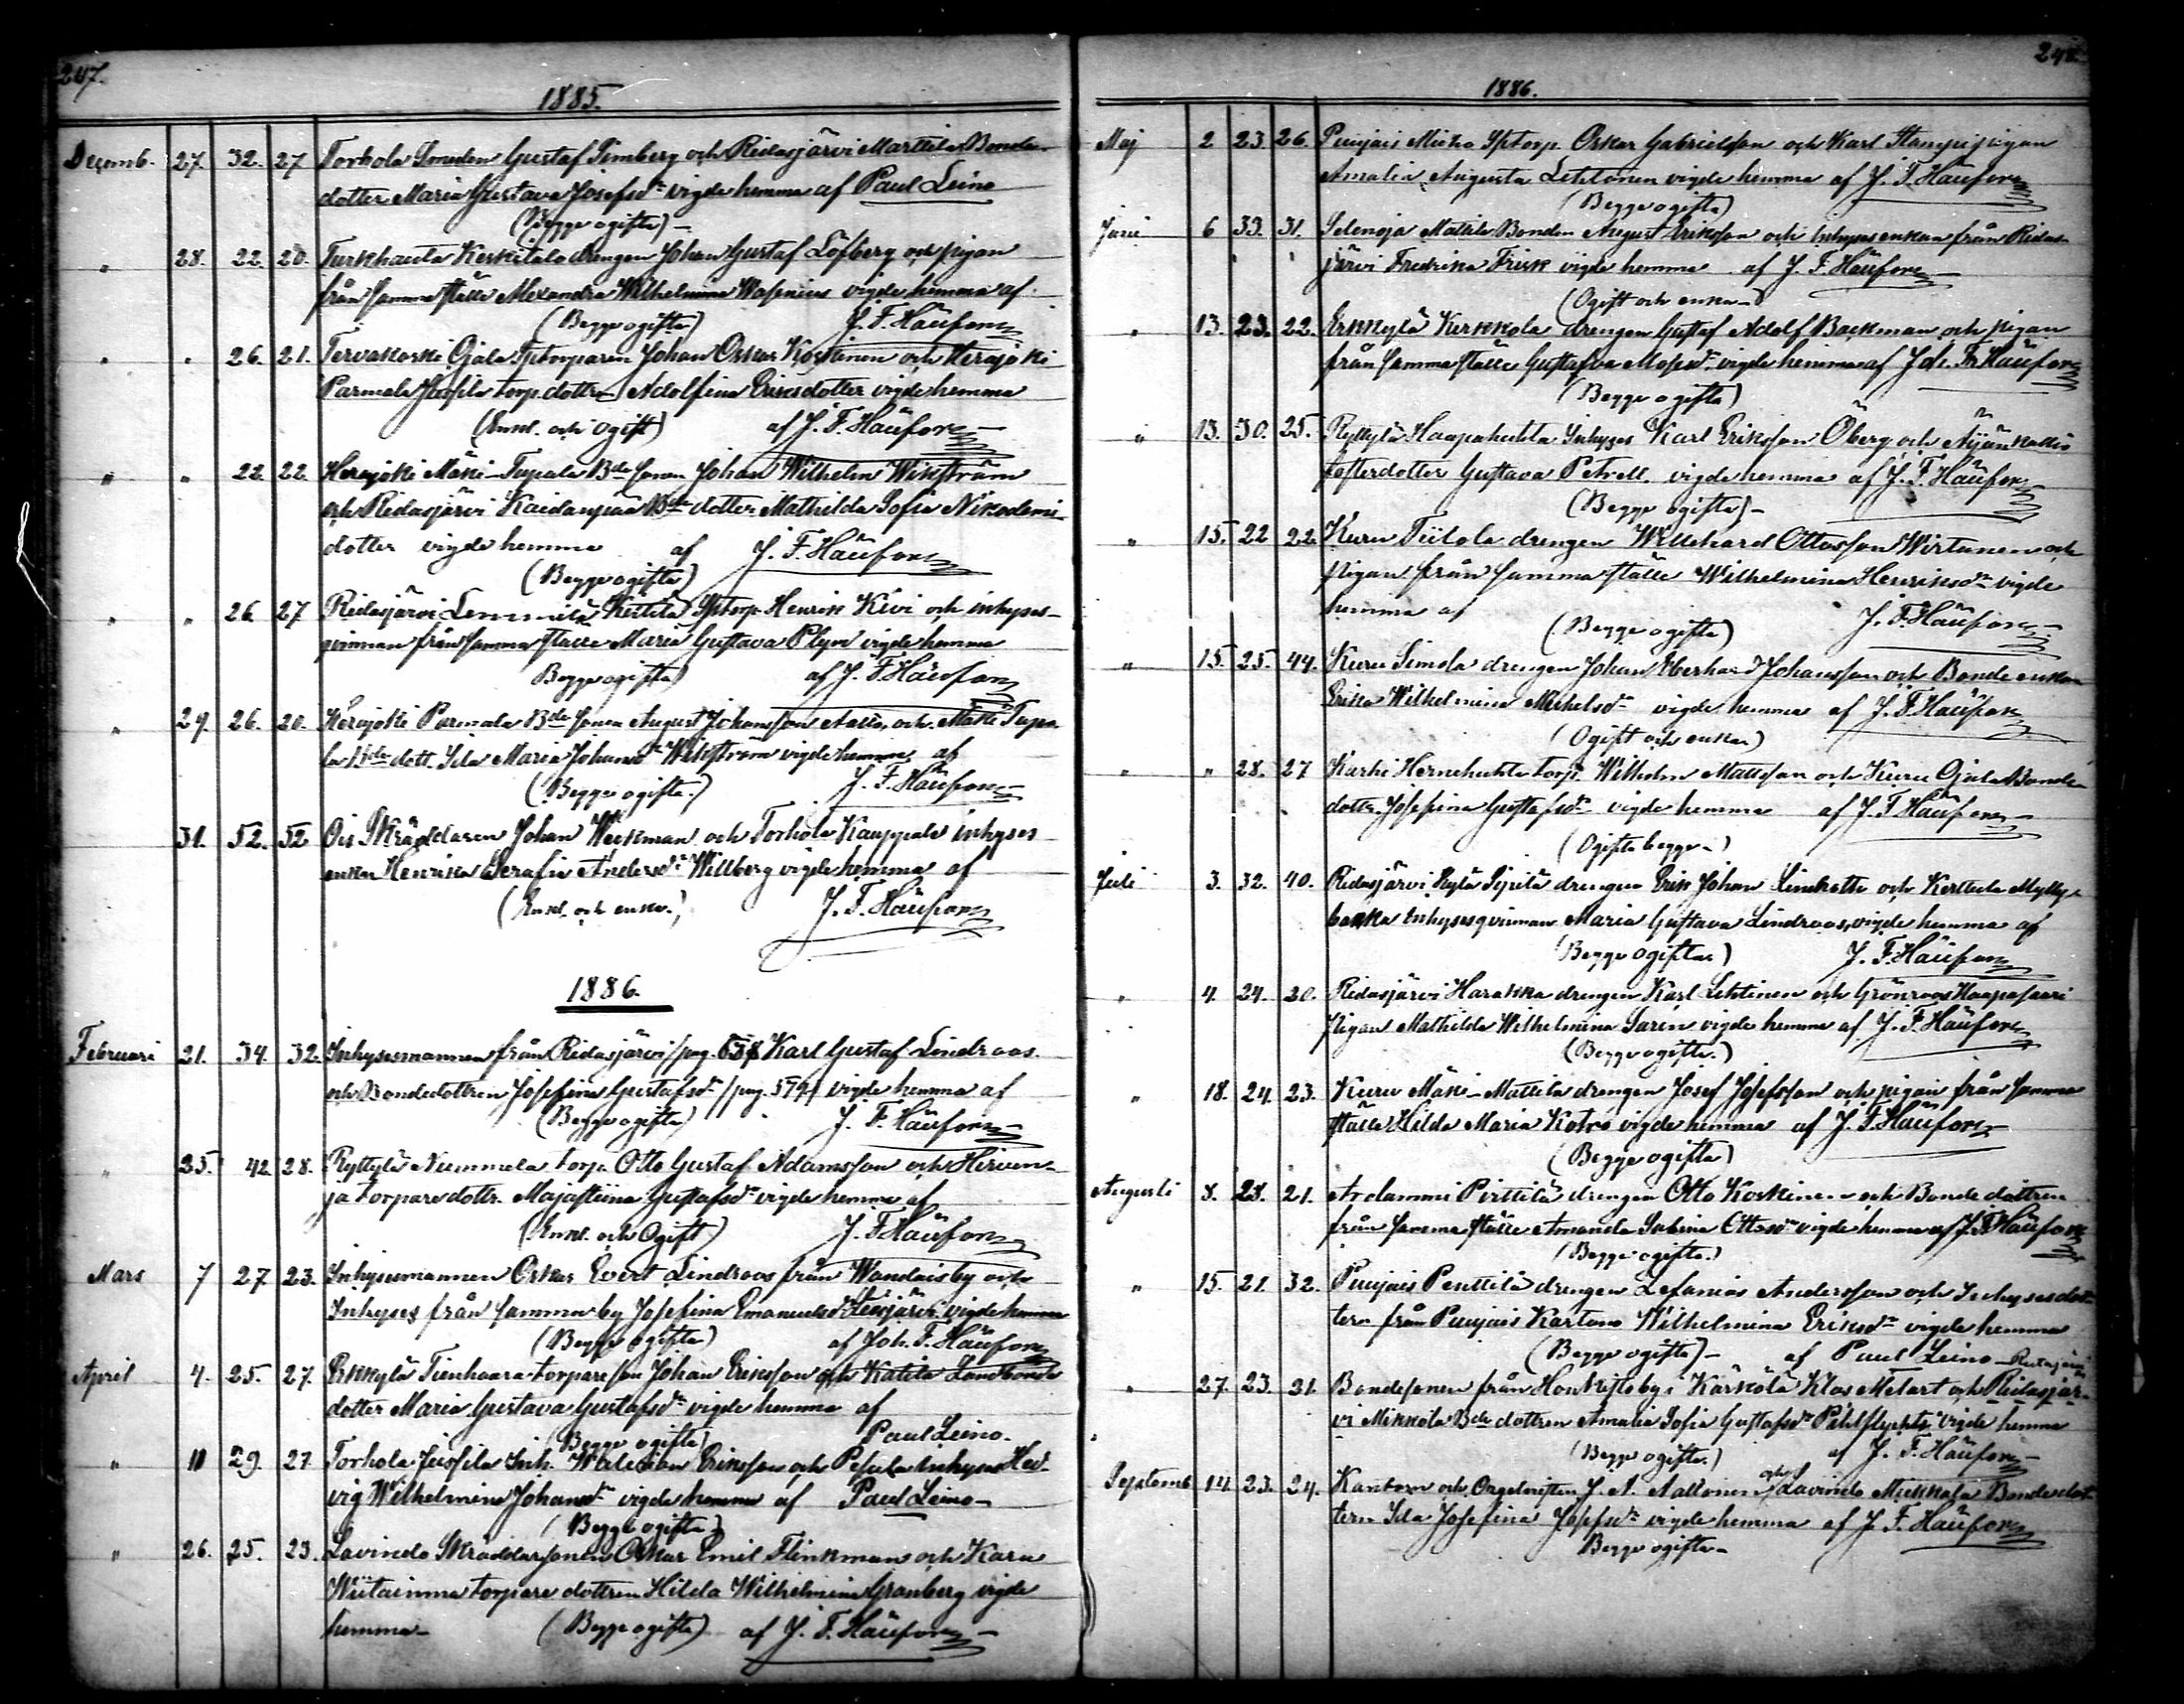 247.
1885.
Decemb. 27. 32. 27 Torhola Smeden Gustaf Limberg och Ridasjärvi Marttila Bonde-
dotter Maria Gustava Josefsdr vigde hemma af Paul Leino
(Begge ogifta)
" 28. 22. 20. Turkhauta Keskitalo drengen Johan Gustaf Löfberg och pigan
från samma ställe Alexandra Wilhelmina Wasenius vigde hemma af
(Begge ogifta) J. F. Häufors
" " 26. 21. Tervakoski Ojala Sptorparen Johan Oskar Koskinen och Herajoki
Parmala Jussila torp. dottern Adolfina Eriksdotter vigde hemma
(Enkl. och ogift) af J. F. Häufors
" " 22. 22. Herajoki Mäki-Tupala Bde sonen Johan Wilhelm Wikström
och Ridasjärvi Kaidanpää Bde dotter Mathilda Sofia Nikodemi
dotter vigde hemma af J. F. Häufors
(Begge ogifta)
" " 26. 27. Ridasjärvi Lemmilä Sptorp. Henrik Kivi och inhyses-
qvinnan från samma ställe Maria Gustava Plym vigde hemma
Begge ogifta) af J. F. Häufors
" 29. 26. 20. Herajoki Parmala Bde sonen August Johansson och Mäki Tupa-
la Bde dott. Ida Maria Johansdr Wikström vigde hemma af
(Begge ogifta.) J. F. Häufors
31. 52. 52 Ois Skräddaren Johan Weckman och Torhola Kauppala inhyses
enkan Henrika Serafia Andersdr Willberg vigde hemma af
(Enkl. och enka.) J. F. Häufors
1886.
Februari 21. 34. 32. Inhysesmannen från Ridasjärvi /pag. Karl Gustaf Lindroos
och Bondedottren Josefina Gustafsdr /pag. 579/ vigde hemma af
(Begge ogifta) J. F. Häufors
" 25. 42. 28. Ryttylä Nummela torp. Otto Gustaf Adamsson och Hirven-
ja torparedottr. Majastiina Gustafsdr vigde hemma af
(Enkl. och Ogift) J. F. Häufors
Mars 7 27 23. Inhysesmannen Oskar Evert Lindroos från Wandais by och
Inhyses från samma by Josefina Emanuelsdr vigde hemma
(Begge ogifta) af Joh. F. Häufors
April 4. 25. 27. Erkkylä Tienhaara torpareson Johan Eriksson och Katila Landbonde
dotter Maria Gustava Gustafsdr vigde hemma af
(Begge ogifta) Paul Leino.
" 11 29. 27. Torhola Jussila Inh. Walerian Eriksson och Pesula inhyses Hed-
vig Wilhelmina Johansdr vigde hemma af Paul Leino
(Begge ogifta)
" 26. 25. 23. Lavindo Skräddarsonen Oskar Emil Flinkman och Karu
torpare dottren Hilda Wilhelmina Granberg vigde
hemma (Begge ogifta) af J. F. Häufors
248.
1886.
Maj 2 23 26. Puujais Sptorp. Oskar Gabrielsson och Karl pigan
Amalia Augusta Lehtonen vigde hemma af J. F. Häufors
(Begge ogifta)
Juni 6 33. 31. Selenoja Mattila Bonden August Eriksson och Inhyses enkan från Ridas-
järvi Fredrika Frisk vigde hemma af J. F. Häufors
(Ogift och enka)
" 13. 23. 22. Erkkylä Kerkkola drengen Gustaf Adolf Backman och pigan
från samma ställe Gustafva Mosesdr vigde hemma af Joh. Fr. Häufors
(Begge ogifta)
" 13. 30. 25. Ryttylä Haapahuhta Inhyses Karl Eriksson Öberg och
fosterdotter Gustava Petrell. vigde hemma af J. F. Häufors
(Begge ogifta)
" 15. 22 22. Kuru Tiilola drengen Willehard Ottosson Wirtanen och
pigan från samma ställe Wilhelmina Henriksdr vigde
hemma af (Begge ogifta) J. F. Häufors
" 15. 25. 44. Kuru Simola drengen Johan Eberhard Johansson och Bonde enkan
Erika Wilhelmina Mickelsdr vigde hemma af J. F. Häufors
(Ogift och enka)
" " 28. 27 Karhi Hernehuhta torp. Wilhelm Mattsson och Kuru Ojala Bonde-
dottr. Josefina Gustafsdr vigde hemma af J. F. Häufors
(Ogifta begge)
Juli 3. 32. 40. Ridasjärvi Kylä Sipilä drengen Erik Johan och Kerttula Mylly-
backa inhysesqvinnan Maria Gustava Lindroos, vigde hemma af
(Begge ogifta) J. F. Häufors
" 4. 24. 20. Ridasjärvi Harakka drengen Karl Lehtinen och Grönroos Haapasaari
pigan Mathilda Wilhelmina Sarin vigde hemma af J. F. Häufors
(Begge ogifta.)
" 18. 24. 23. Kuru Mäki-Mattila drengen Josef Josefsson och pigan från samma
ställe Hilda Maria Kotro vigde hemma af J. F. Häufors
(Begge ogifta)
Augusti 8. 28. 21. Arolammi Pirttilä drengen Otto Koskinen och Bonde dottren
från samma ställe Amanda Sabina Ottosdr vigde hemma af J. F. Häufors
(Begge ogifta.)
" 15. 21. 32. Puujais Penttilä drengen Zefanias Andersson och Inhysesdot-
tern från Puujais Kartano Wilhelmina Eriksdr vigde hemma
(Begge ogifta) af Paul Leino
" 27. 23. 21. Bondesonen från by i Kärkölä Klas Metart och Ridasjär-
vi Mikkola Bde dottren Amalia Sofia Gustafsdr vigde hemma
(Begge ogifta.) af J. F. Häufors
Septemb 14. 23. 24. Kantorn och Orgelnisten J. A. Aaltonen och Lavindo Mickkala Bondedot-
tern Ida Josefina Josefsdr vigde hemma af J. F. Häufors
Begge ogifta